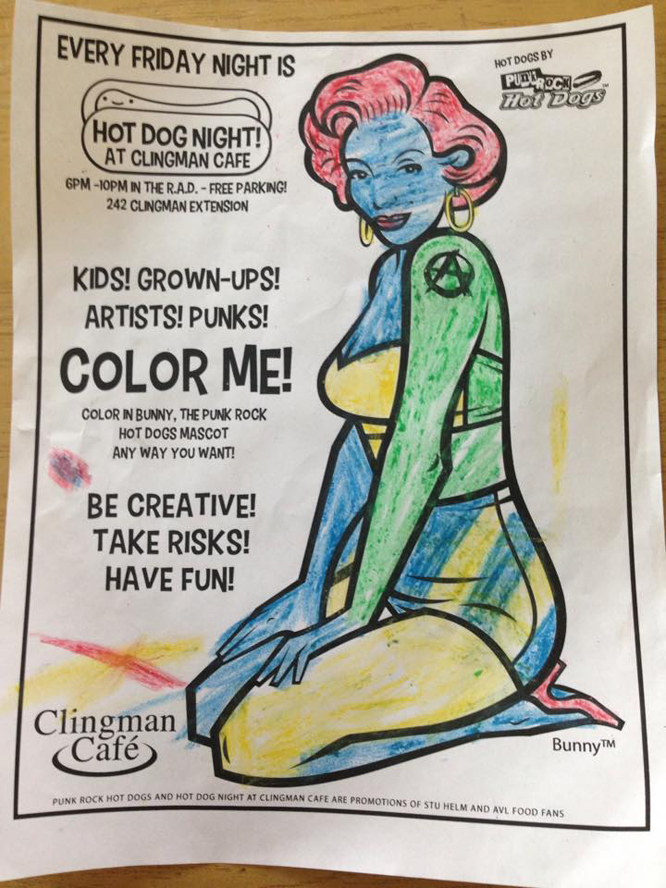 EVERY FRIDAY NIGHT IS
HOT DOG NIGHT!
AT CLINGMAN CAFE
6PM -10PM IN THE R.A.D. - FREE PARKING!
242 CLINGMAN EXTENSION
HOT DOGS BY
PUNK ROCK
Hot Dogs™
KIDS! GROWN-UPS!
ARTISTS! PUNKS!
COLOR ME!
COLOR IN BUNNY, THE PUNK ROCK
HOT DOGS MASCOT
ANY WAY YOU WANT!
BE CREATIVE!
TAKE RISKS!
HAVE FUN!
A
Clingman
Café
Bunny™
PUNK ROCK HOT DOGS AND HOT DOG NIGHT AT CLINGMAN CAFE ARE PROMOTIONS OF STU HELM AND AVL FOOD FANS